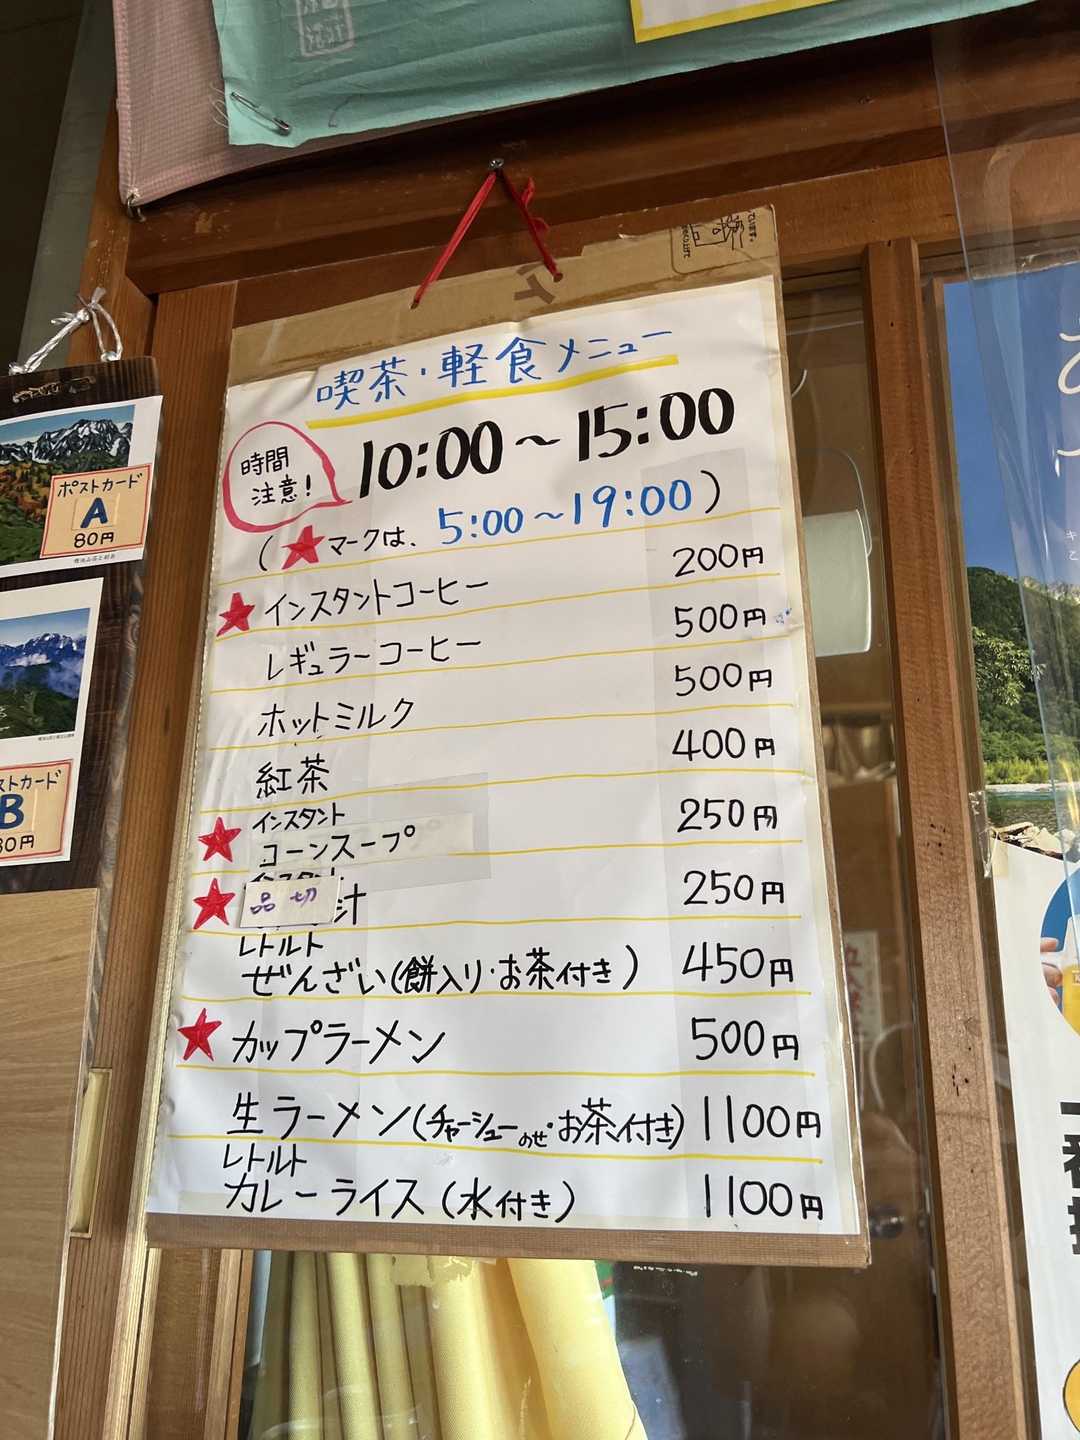 喫茶・軽食メニュー
時間
注意!
10:00～15:00
(★マークは、5:00～19:00)
★インスタントコーヒー 200円
レギュラーコーヒー 500円
ホットミルク 500円
紅茶 400円
インスタント
★コーンスープ 250円
インスタント
★品切 汁 250円
レトルト
ぜんざい(餅入り・お茶付き) 450円
★カップラーメン 500円
生ラーメン(チャーシューのせ・お茶付き) 1100円
レトルト
カレーライス(水付き) 1100円
ポストカード
A
80円
ストカード
B
80円